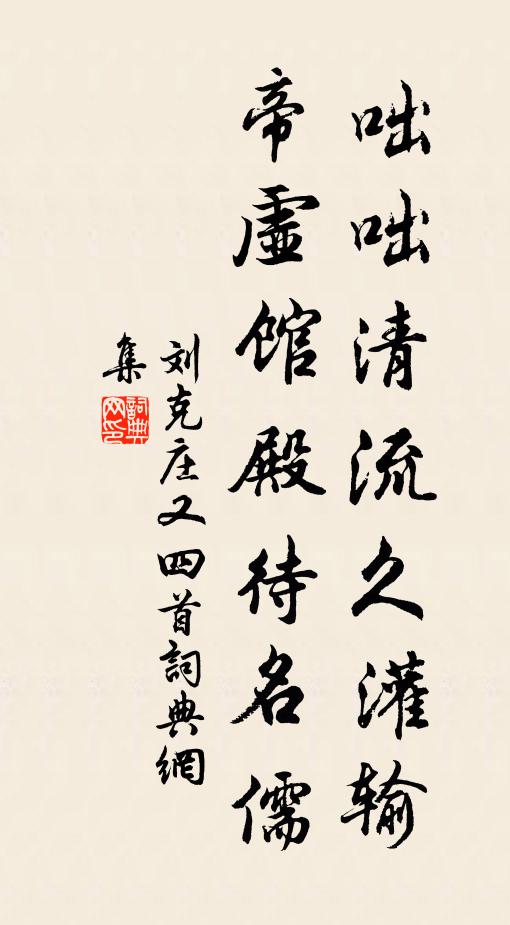 咄咄清流久灌输
帝虚馆殿待名儒
刘克庄又四首詞典網
集
詞典网印